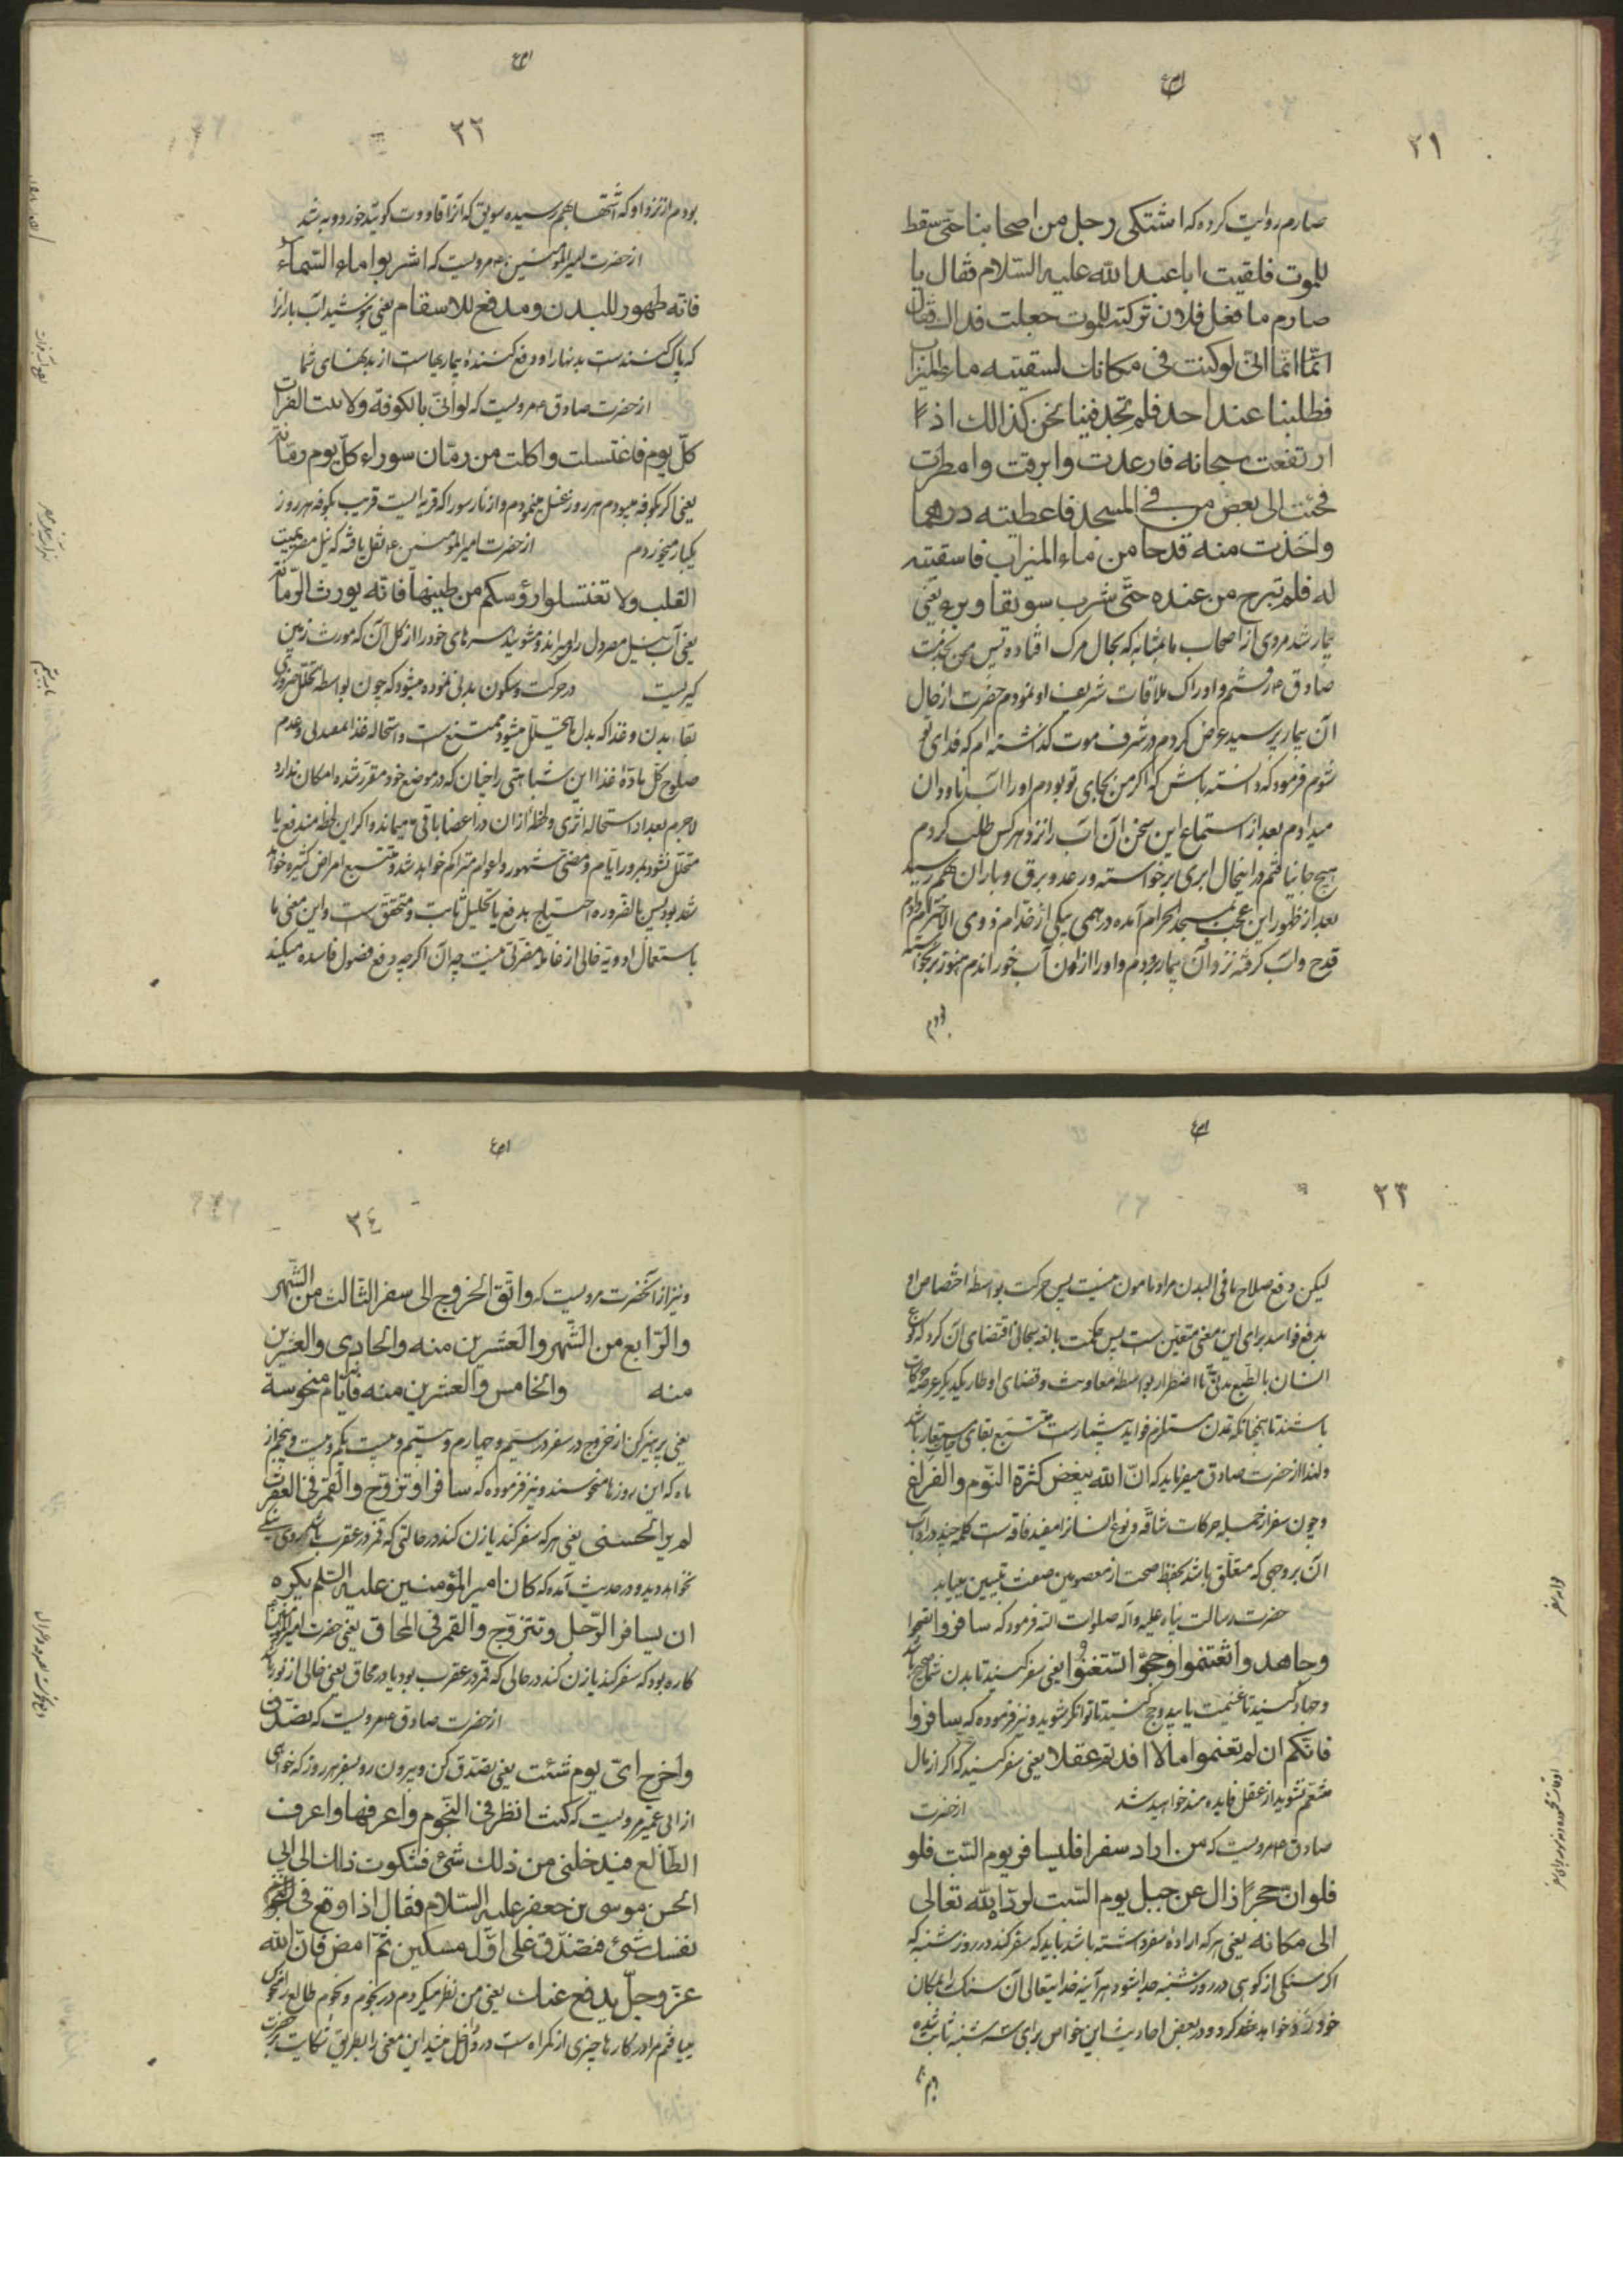 ٣١
صارم روایت کرده که اشتکی رجل من اصحابنا حتی سقط
للموت فلقیت اباعبدالله علیه السّلام فقال یا
صارم ما فعل فلان ترکته للموت جعلت فداک فقال
امّا انّی لو کنت فی مکانک لسقیته ماء المیزاب
فطلبنا عند احد فلم نجد فبینا نحن کذالک اذ
ارتفعت سحابه فارعدت وابرقت وامطرت
فجئت الی بعض من فی المسجد فاعطیته درهما
واخذت منه قدحا من ماء المیزاب فاسقیته
له فلم تبرح من عنده حتّی شرب سویقا وبرء یعنی
بیمار شد مردی از اصحاب ما بمثابه که بحال مرک افتاده پس من بخدمت
صادق ع رفتم و ادراک ملاقات شریف او نمودم حضرت از حال
آن بیمار پرسید عرض کردم در شرف موت کذاشته ام که فدای تو
شوم فرمود که دانسته باش که اکر من بجای تو بودم او را آب ناودان
میدادم بعد از استماع این سخن آن آب را نزد هر کس طلب کردم
هیچ جا نیافتم در اینحال ابری برخواسته و رعد و برق و باران بهم رسید
بعد از ظهور این عجب بمسجد الحرام آمده درهمی بیکی از خدّام ذوی الاحترام دادم
قدح و آب کرفته نزد آن بیمار بردم و او را از اون آب خوراندم هنوز برنخواسته
بودم
٣٢
بودم از نزد او که اشتها بهم رسیده سویق که آنرا قاووت کویند خورد و به شد
از حضرت امیرالمؤمنین ع مرویست که اشربوا ماء السّماء
فانّه طهور للبدن ومدفع للاسقام یعنی بنوشید آب بارانرا
که پاک کننده ست بدنها را و دفع کنندهٔ بیماریهاست از بدنهای شما
از حضرت صادق ع مرویست که لو انّی بالکوفة ولاتیت الفرات
کلّ یوم فاغتسلت واکلت من رمّان سوراء کلّ یوم رمّانة
یعنی اکر بکوفه میبودم هر روز غسل مینمودم و از نار سورا که قریه ایست قریب بکوفه هر روز
یکبار میخوردم از حضرت امیرالمؤمنین ع نقل یافته که نیل مصر یمیت
القلب ولا تغتسلوا رؤسکم من طینها فانّه یورث الزّمانة
یعنی آب نیل مصر دل را میمیراند و مشوئید سرهای خود را از کل آن که مورث زمین
کیریست در حرکت و سکون بدنی نموده میشود که چون بواسطه تحلل ضروری
بقاء بدن و غذا که بدل ما یتحلل میشود ممتنع ست و استحاله غذا لمعدلی و عدم
صلوح کل مادّهٔ غذا این شباهتی را چنان که در موضع خود مقرر شده امکان ندارد
لاجرم بعد از استحاله اثری و لطخهٔ از ان در اعضا باقی میماند و اکر این لطخه مندفع یا
متحلل نشود بمرور ایّام و مضیّ شهور و اعوام متراکم خواهد شد و مستتبع امراض کثیره خواهد
شد بود پس بالضروره احتیاج بدفع یا تحلیل ثابت و متحقق ست و این معنی با
استعمال ادویه خالی از غائله مضرّتی نیست چه آن اکرچه دفع فضول فاسده میکند
٣٣
لیکن دفع صلاح ما فی البدن مراد مامون نیست پس حرکت بواسطهٔ اختصاص او
بدفع فواسد برای این معنی متعین ست پس حکمت بالغه سبحانی اقتضای آن کرد که نوع
انسان بالطّبع مدنی تا اضطرار بواسطهٔ معاونت و قضای اوطار یکدیکر عرضهٔ حرکات
باشند تا همچنانکه تمدن مستلزم فواید بیشمار ست مستتبع بقای باشد
ولهذا از حضرت صادق میفرماید که انّ الله یبغض کثرة النّوم والفراغ
و چون سفر از جمله حرکات شاقه و نوع انسانرا مفید فاقه ست کلمه چند در آداب
آن بر وجهی که متعلّق باشد بحفظ صحت از معصومین صفت تبیین مییابد
حضرت رسالت پناه علیه وآله صلوات الله فرمود که سافروا تصحوا
وجاهدوا تغتنموا وحجّوا تستغنوا یعنی سفر کنید تا بدن شما صحیح باشد
و جهاد کنید تا غنیمت یابید و حج کنید تا توانکر شوید و نیز فرموده که سافروا
فانّکم ان لم تغنموا مالا افدتم عقلا یعنی سفر کنید که اکر از مال
متنعّم نشوید از عقل فایده مند خواهید شد از حضرت
صادق ع مرویست که من اراد سفرا فلیسافر یوم السّبت فلو
فلو انّ حجرا زال عن جبل یوم السّبت لردّه الله تعالی
الی مکانه یعنی هر که ارادهٔ سفر داشته باشد باید که سفر کند در روز شنبه که
اکر سنکی از کوهی در روز شنبه جدا شود هر آینه خدایتعالی آن سنک را بمکان
خود رد خواهد کرد و در بعض احادیث این خواص برای سه شنبه ثابت شده
٣٤
و نیز از آنحضرت مرویست که واتّق الخروج الی سفر الثّالث من الشّهر
والرّابع من الشّهر والعشرین منه والحادی والعشرین
منه والخامس والعشرین منه فانّها ایّام منحوسة
یعنی بپرهیز کن از خروج در سفر در سیم و چهارم و بیستم و بیست یکم و بیست و پنجم از
ماه که این روزها منحوسند و نیز فرموده که سافر او تزوّج والقمر فی العقرب
لم یر الحسنی یعنی هر که سفر کند یا زن کند در حالتی که قمر در عقرب باشد روی نیکی
نخواهد دید و در حدیث آمده که کان امیر المؤمنین علیه السّلم یکره
ان یسافر الرّجل وتتزوّج والقمر فی المحاق یعنی حضرت امیر المؤمنین
کاره بود که سفر کند یا زن کند در حالی که قمر در عقرب بود یا در محاق یعنی خالی از نور باشد
از حضرت صادق ع مرویست که تصدّق
واخرج ایّ یوم شئت یعنی تصدّق کن و بیرون رو بسفر هر روز که خواهی
از ابی عمیر مرویست که کنت انظر فی النّجوم واعرفها واعرف
الطّالع فیدخلنی من ذلک شئ فشکوت ذلک الی ابی
الحسن موسی بن جعفر علیه السّلام فقال اذا وقع فی
نفسک شئ فتصدّق علی اوّل مسکین ثمّ امض فانّ الله
عزّ وجلّ یدفع عنک یعنی من نظر میکردم در نجوم و نجوم طالع را
مییافتم مرا در کارها چیزی از کمراه ست در داخل میشد این معنی را بطریق شکایت بر حضرت